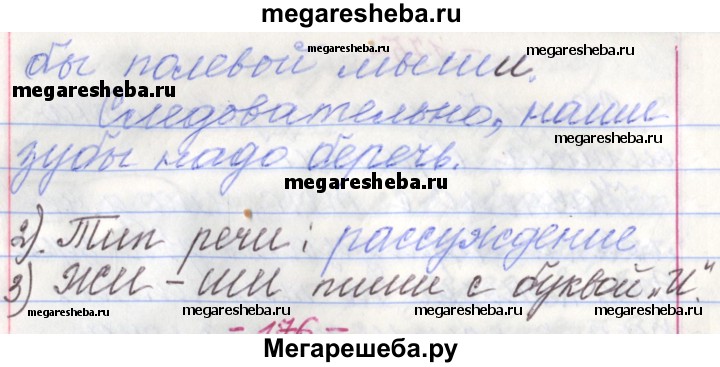 megaresheba.ru
бы полевой мыши.
megaresheba.ru
megaresheba.ru
megaresheba.ru
Следовательно, наши
megaresheba.ru
зубы надо беречь.
megaresheba.ru
2). Тип речи: рассуждение
3) Жи – ши пиши с буквой „И".
megaresheba.ru
megaresheba.ru
megaresheba.ru
- 176 -
Мегарешеба.ру